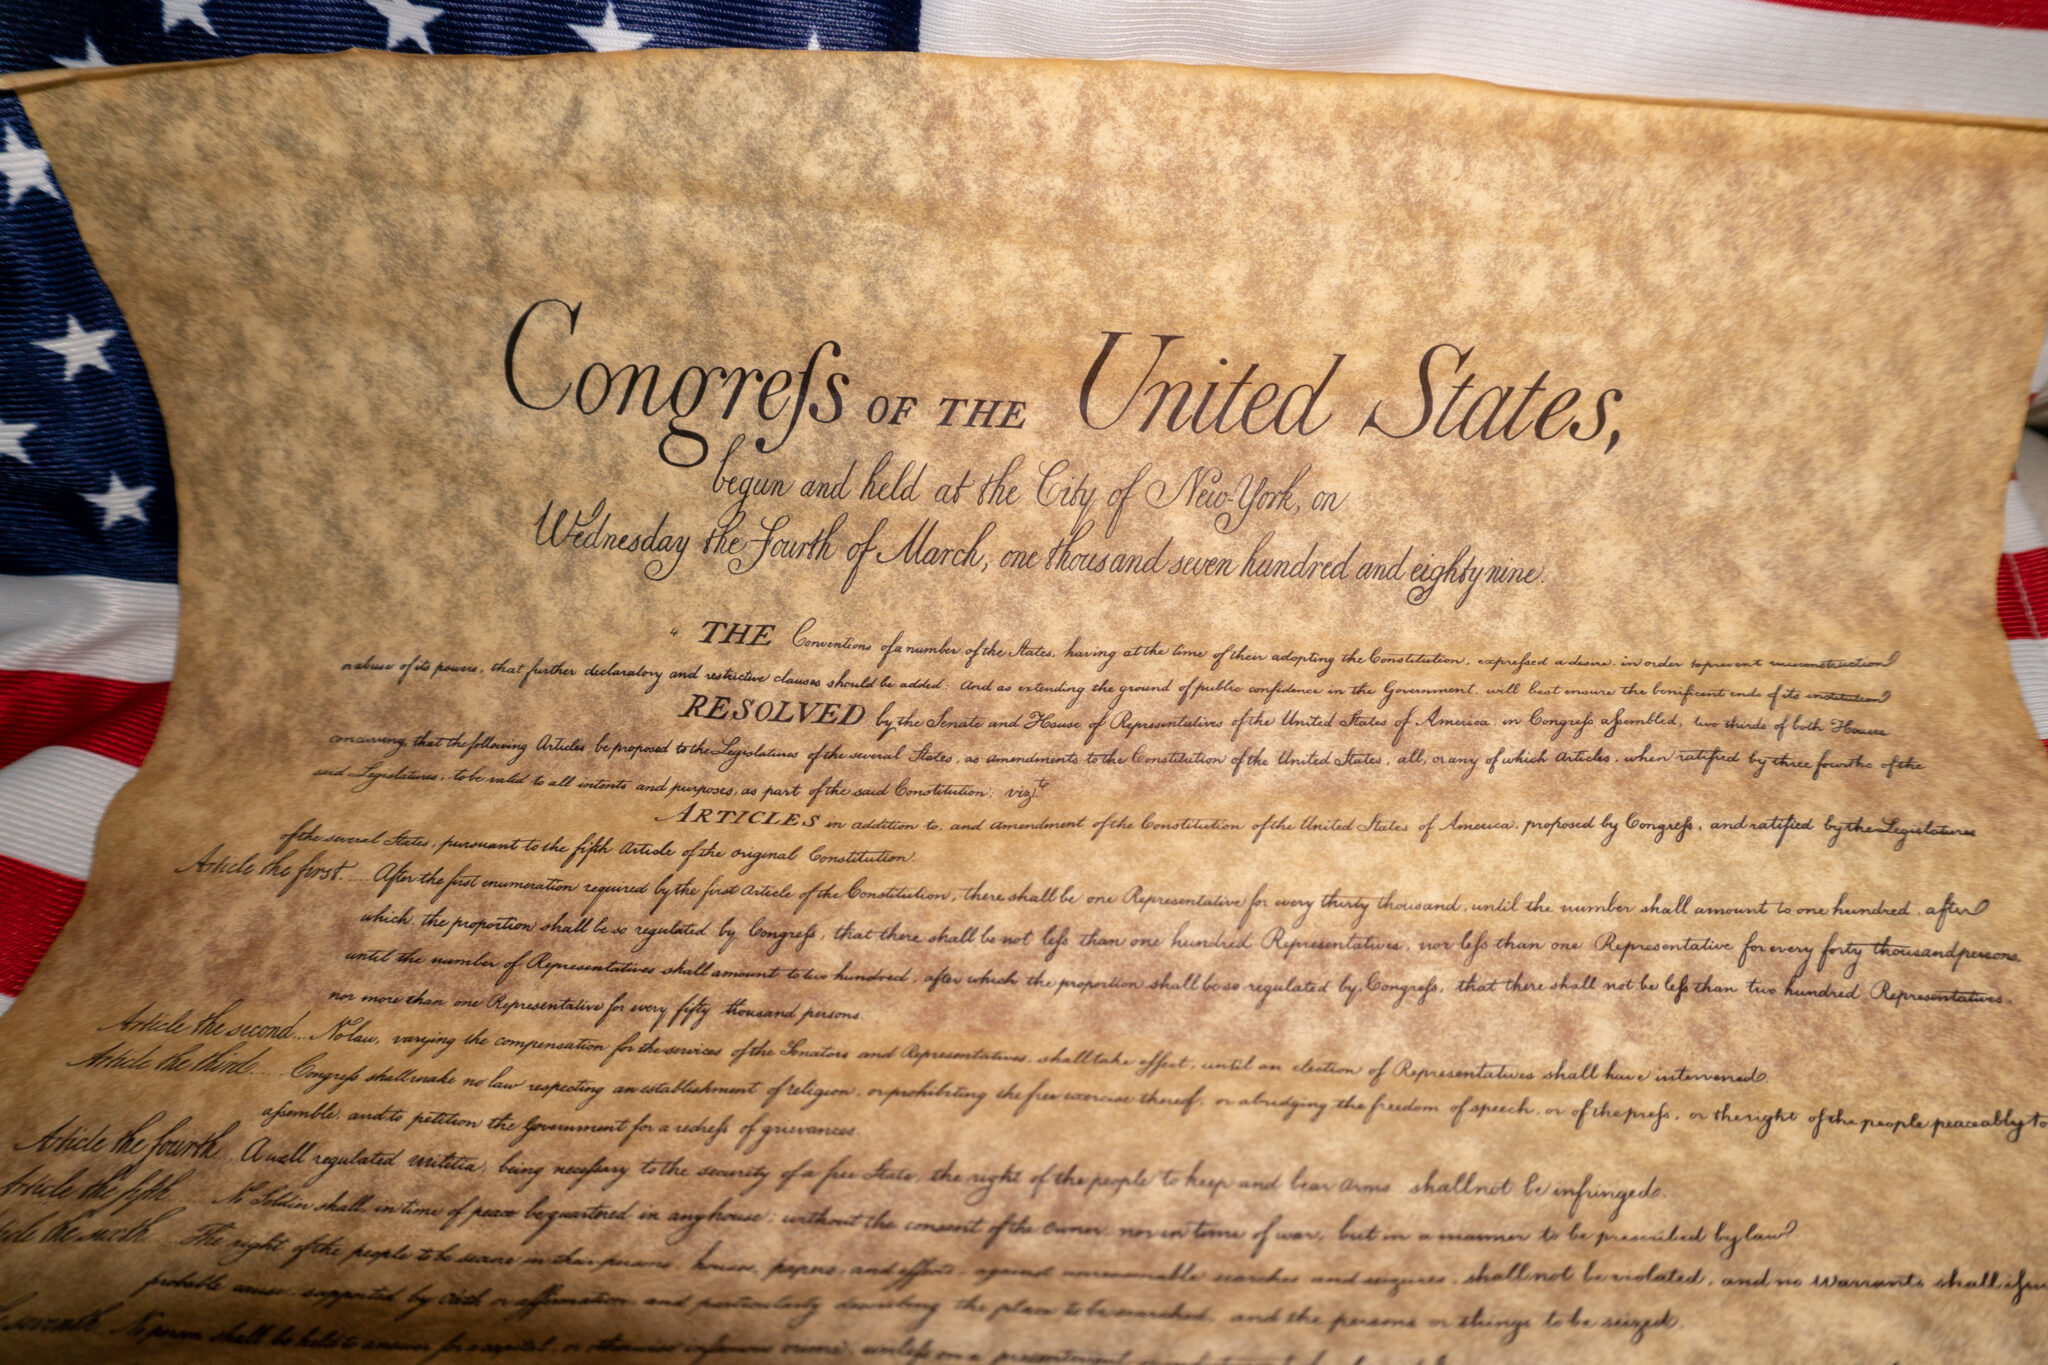 Congreſs OF THE United States,
begun and held at the City of New-York, on
Wednesday the Fourth of March, one thousand seven hundred and eighty nine.
THE Conventions of a number of the States, having at the time of their adopting the Constitution, expreſsed a desire, in order to prevent misconstruction
or abuse of its powers, that further declaratory and restrictive clauses should be added: And as extending the ground of public confidence in the Government, will best ensure the benificent ends of its institution
RESOLVED by the Senate and House of Representatives of the United States of America, in Congreſs aſsembled, two thirds of both Houses
concurring, that the following Articles be proposed to the Legislatures of the several States, as amendments to the Constitution of the United States, all, or any of which Articles, when ratified by three fourths of the
said Legislatures, to be valid to all intents and purposes, as part of the said Constitution; vizt.
ARTICLES in addition to, and amendment of the Constitution of the United States of America, proposed by Congreſs, and ratified by the Legislatures
of the several States, pursuant to the fifth Article of the original Constitution.
Article the first.... After the first enumeration required by the first Article of the Constitution, there shall be one Representative for every thirty thousand, until the number shall amount to one hundred, after
which, the proportion shall be so regulated by Congreſs, that there shall be not leſs than one hundred Representatives, nor leſs than one Representative for every forty thousand persons,
until the number of Representatives shall amount to two hundred, after which the proportion shall be so regulated by Congreſs, that there shall not be leſs than two hundred Representatives,
nor more than one Representative for every fifty thousand persons.
Article the second... No law, varying the compensation for the services of the Senators and Representatives, shall take effect, until an election of Representatives shall have intervened.
Article the third..... Congreſs shall make no law respecting an establishment of religion, or prohibiting the free exercise thereof; or abridging the freedom of speech, or of the preſs, or the right of the people peaceably to
aſsemble, and to petition the Government for a redreſs of grievances.
Article the fourth.. A well regulated militia, being neceſsary to the security of a free State, the right of the people to keep and bear arms, shall not be infringed.
Article the fifth.... No Soldier shall, in time of peace be quartered in any house, without the consent of the owner, nor in time of war, but in a manner to be prescribed by law.
the sixth.... The right of the people to be secure in their persons, houses, papers, and effects, against unreasonable searches and seizures, shall not be violated, and no warrants shall iſsue
probable cause, supported by oath or affirmation and particularly describing the place to be searched, and the persons or things to be seized.
seventh. No person shall be held to answer for a capital, or otherwise infamous crime, unleſs on a presentment